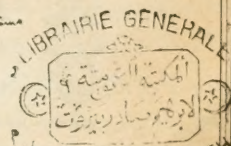 LIBRAIRIE GENERALE
المكتبة العمومية
لابرهيم صادر بيروت